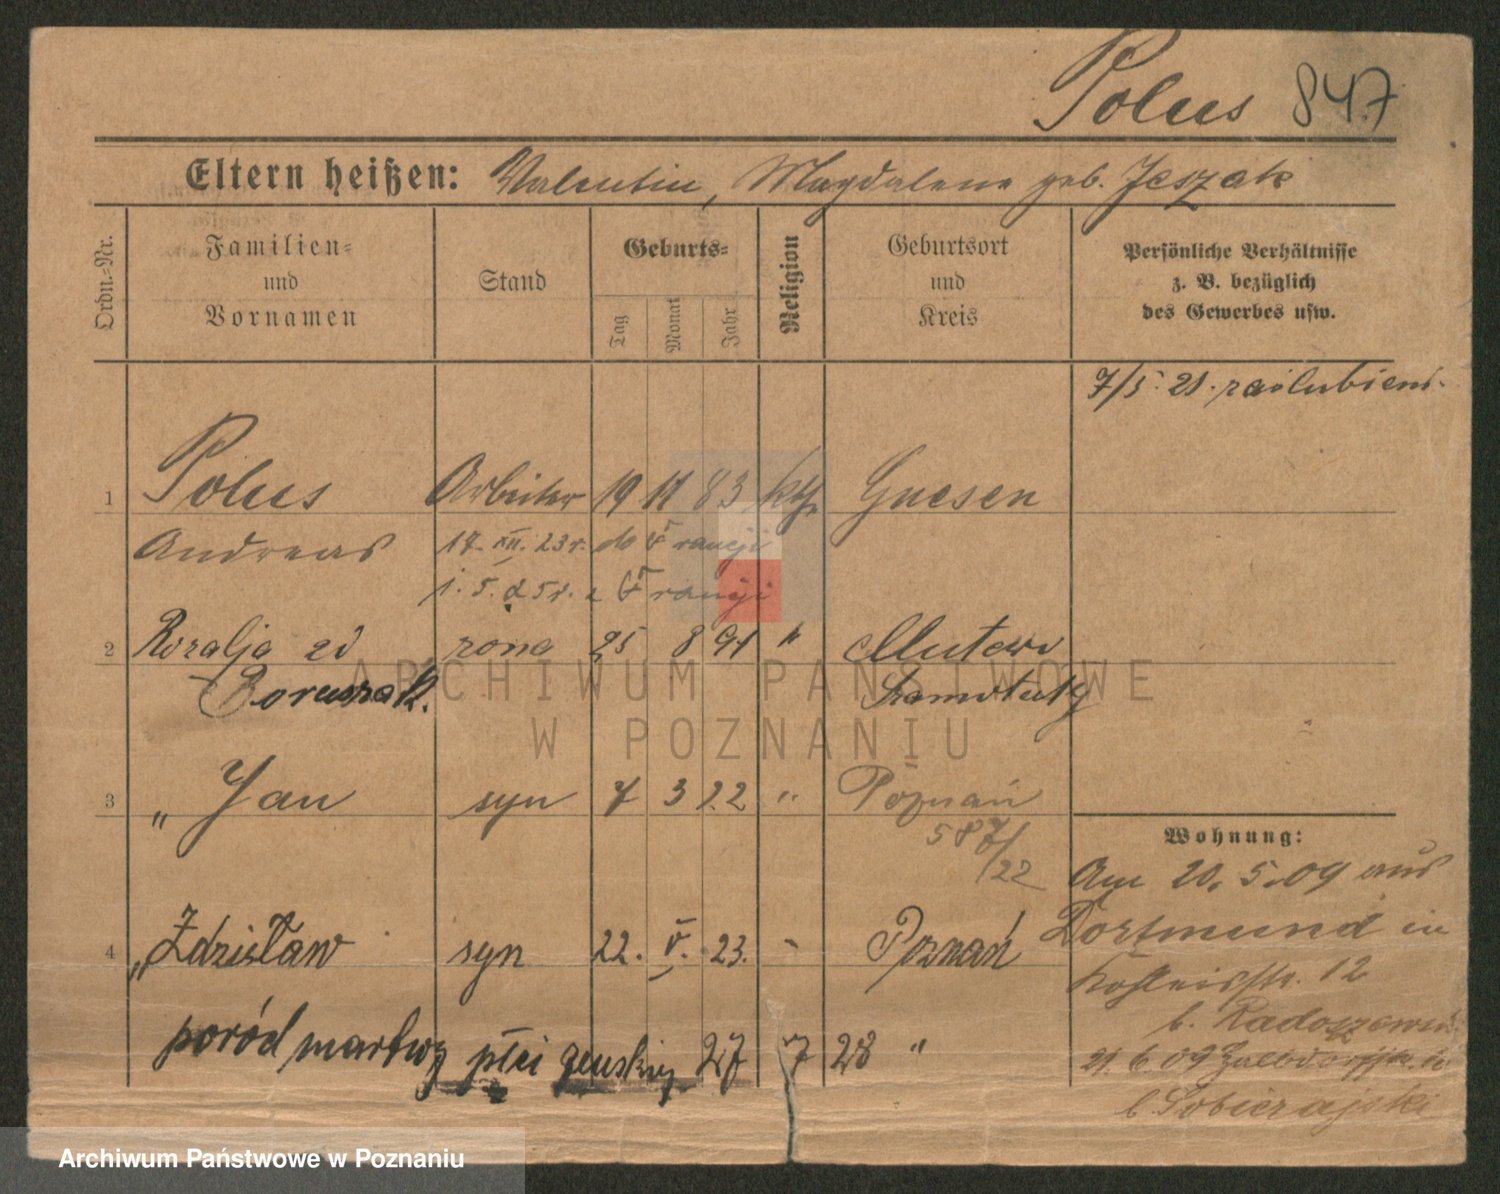 Polus 847
Eltern heißen: Valentin, Magdalene geb. Jeszak
Ordn.-Nr.
Familien-
und
Vornamen
Stand
Geburts-
Tag
Monat
Jahr
Religion
Geburtsort
und
Kreis
Persönliche Verhältnisse
z. B. bezüglich
des Gewerbes usw.
7/5. 21. zaślubieni.
1 Polus Arbeiter 19 11 83 kth. Gnesen
Andreas 17. XII. 23 r. do Francji
5. 25 r. z Francji
2 Rozalja zd żona 25 8 91 "
Boruszak. Szamotuły
3 " Jan syn 7 3 22 " Poznań
587/22
Wohnung:
Am 20. 5. 09 aus
4 " Zdzisław syn 22. V. 23. " Poznań
Dortmund in
12
b.
poród martwy płci żeńskiej 27 7 28 "
21. 6. 09
b Sobierajski
ARCHIWUM PAŃSTWOWE
W POZNANIU
Archiwum Państwowe w Poznaniu